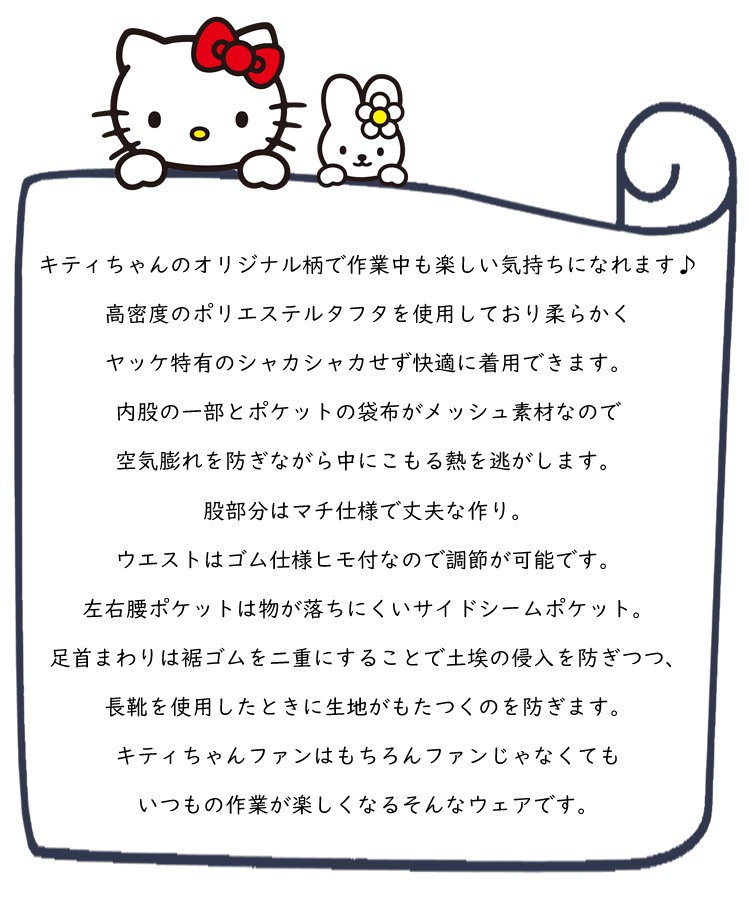 キティちゃんのオリジナル柄で作業中も楽しい気持ちになれます♪
高密度のポリエステルタフタを使用しており柔らかく
ヤッケ特有のシャカシャカせず快適に着用できます。
内股の一部とポケットの袋布がメッシュ素材なので
空気膨れを防ぎながら中にこもる熱を逃がします。
股部分はマチ仕様で丈夫な作り。
ウエストはゴム仕様ヒモ付なので調節が可能です。
左右腰ポケットは物が落ちにくいサイドシームポケット。
足首まわりは裾ゴムを二重にすることで土埃の侵入を防ぎつつ、
長靴を使用したときに生地がもたつくのを防ぎます。
キティちゃんファンはもちろんファンじゃなくても
いつもの作業が楽しくなるそんなウェアです。